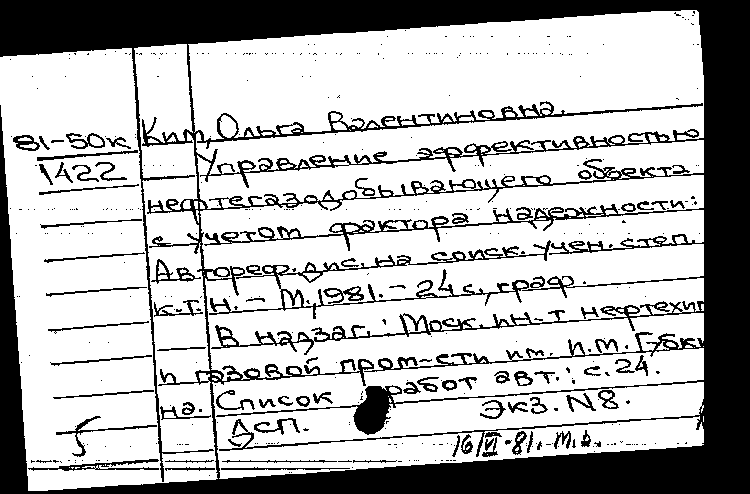 81-50к Ким, Ольга Валентиновна.
1422 Управление эффективностью
нефтегазодобывающего объекта
с учетом фактора надежности:
Автореф. дис. на соиск. учен. степ.
к.т.н. - М., 1981. - 24 с., граф.
В надзаг.: Моск. ин-т нефтехим
и газовой пром-сти им. И.М. Губки
на. Список работ авт.: с. 24.
ДСП. Экз. N8.
5 16/VI-81.